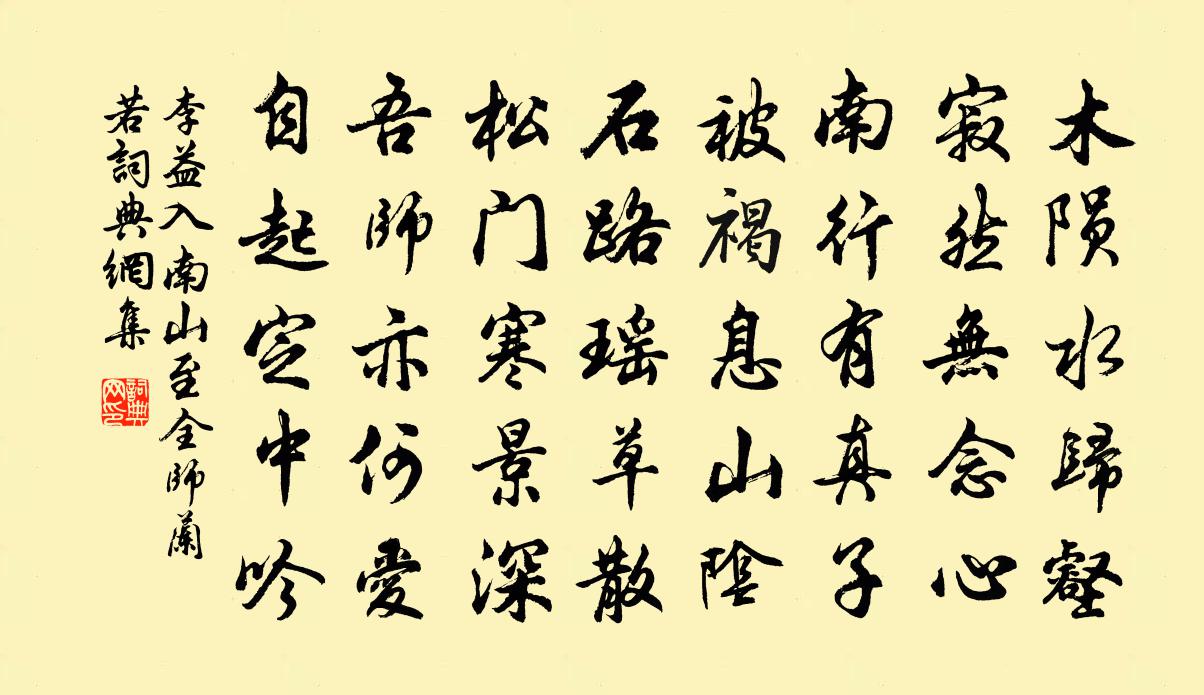 木陨水歸壑
寂然無念心
南行有真子
被褐息山陰
石路瑶草散
松门寒景深
吾師亦何愛
自起定中吟
李益入南山至全師蘭
若詞典網集
詞典网印